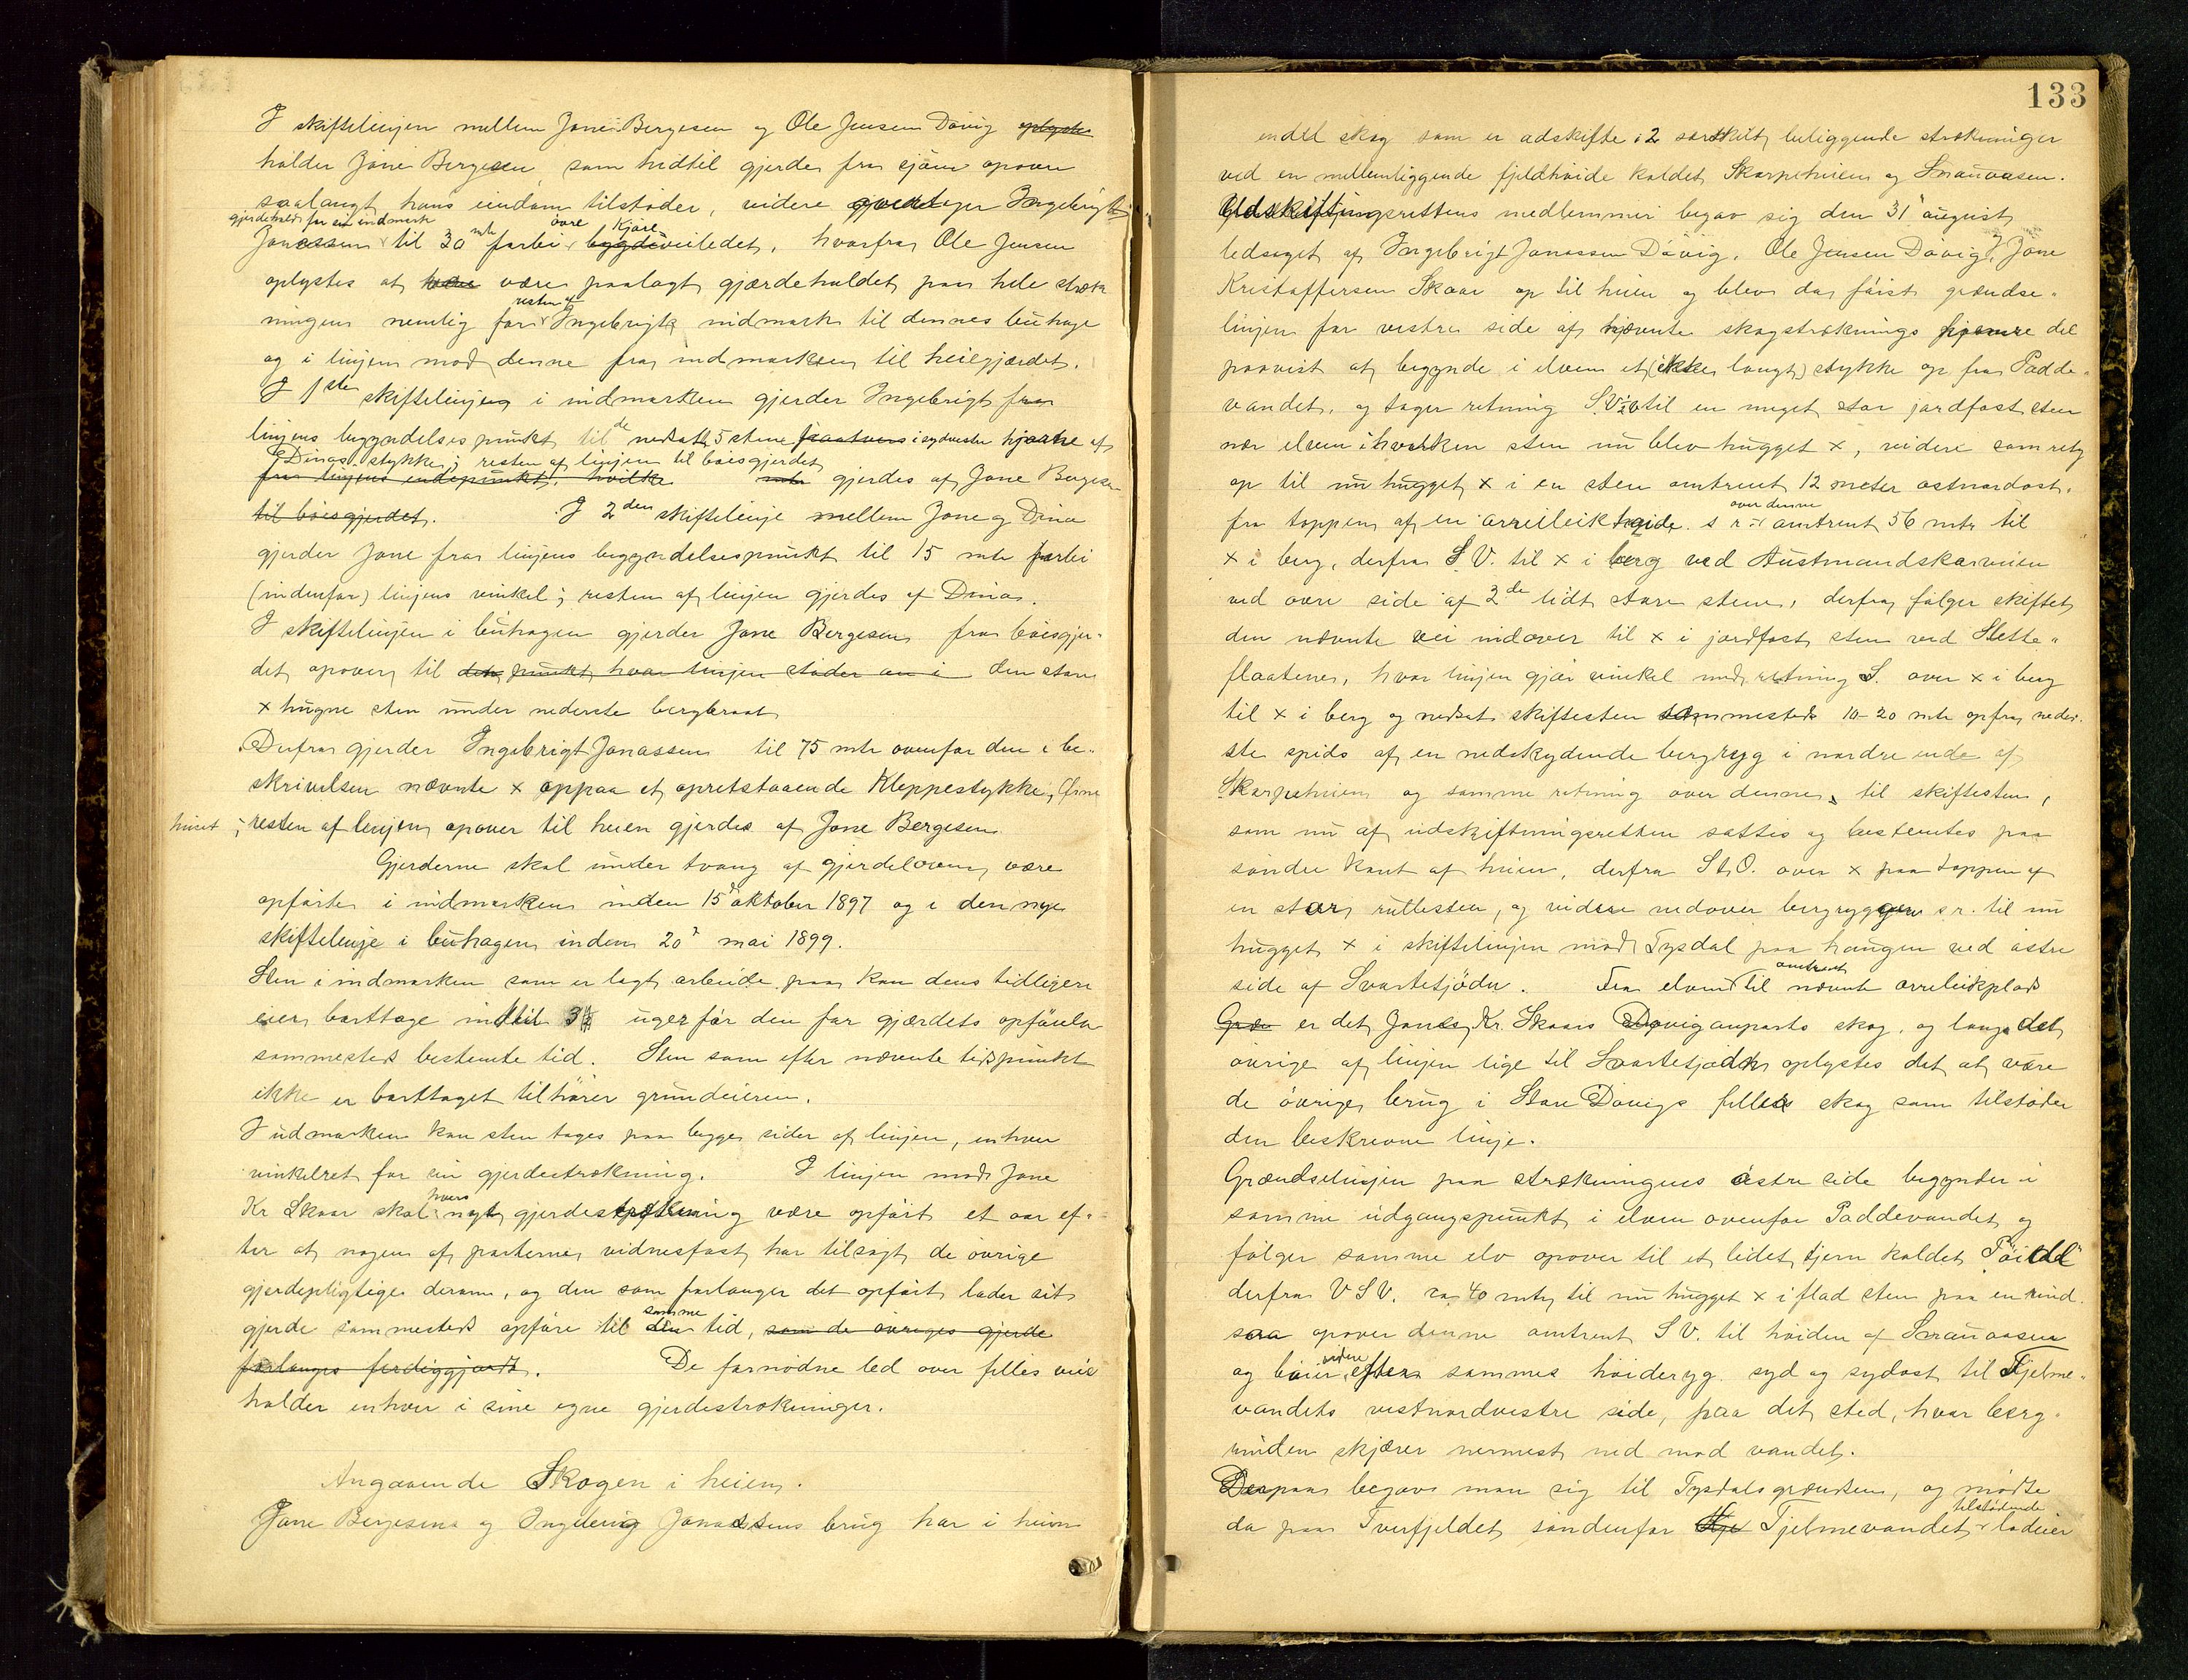 I skiftelinjen mellem Jone Bergesen og Ole Jensen Døvig oplystes
holder Jone Bergesen, som hidtil gjerde fra sjøen opover
saalangt hans eiendom tilstøder, videre overtager Ingebrigt
gjerdehold for sin indmark
Jonassen til 30 mtr forbi øvre Kjøre bygdeveiledet, hvorfra Ole Jensen
oplystes at have være paalagt gjærdeholdet paa hele stræk
ningen nemlig for resten af Ingebrigts indmark til dennes buhage
og i linjen mod denne fra indmarken til heiegjærdet.
I 1ste skiftelinjen i indmarken gjerder Ingebrigt fra
linjens begyndelsespunkt til de nedsatte 5 stene i sydvestre hjørne af
Dinas stykke; resten af linjen til bøisgjerdet
fra linjens endepunkt, hvilke mtr gjerdes af Jone Bergesen
til bøisgjerdet. I 2den skiftelinje mellem Jone og Dina
gjerder Jone fra linjens begyndelsespunkt til 15 mtr forbi
(indenfor) linjens vinkel; resten af linjen gjerdes af Dina.
I skiftelinjen i buhagen gjerder Jone Bergesen fra bøisgjer-
det opover til det punkt hvor linjen støder an i den store
x hugne sten under nederste bergbraat
Derfra gjerder Ingebrigt Jonassen til 75 mtr ovenfor den i be-
skrivelsen nævnte x oppaa et opretstaaende Kleppestykke,
resten af linjen opover til heien gjerdes af Jone Bergesen
Gjerderne skal under tvang af gjerdeloven være
opførte i indmarken inden 15de oktober 1897 og i den nye
skiftelinje i buhagen inden 20de mai 1899.
Sten i indmarken som er lagt arbeide paa kan dens tidligere
eier borttage indtil 3 uger før den for gjærdets opførelse
sammesteds bestemte tid. Sten som efter nævnte tidspunkt
ikke er borttaget tilhører grundeieren.
I udmarken kan sten tages paa begge sider af linjen, enhver
vinkelret for sin gjerdestrækning. I linjen mod Jone
Kr Skaar skal hvers nyt gjerdestrækning være opført et aar ef-
ter at nogen af parterne vidnesfast har tilsagt de øvrige
gjerdepligtige derom, og den som forlanger det opført lader sit
gjerde sammesteds opføre til samme tid, som de øvriges gjerde
forlanges ferdiggjordt. De fornødne led over felles veie
holder enhver i sine egne gjerdestrækninger.
Angaaende Skogen i heien.
Jone Bergesens og Ingebrigt Jonassens brug har i heien
133
endel skog som er adskifte i 2 særskilt beliggende strækninger
ved en mellemliggende fjeldhøide kaldet Skarpeheien og Snauaasen.
Udskiftningsrettens medlemmer begav sig den 31te august
ledsaget af Ingebrigt Jonassen Døvig, Ole Jensen Døvig, Jone
Kristoffersen Skaar op til heien og blev da først grændse-
linjen for vestre side af nævnte skogstræknings del
paavist at begynde i elven et (ikke langt) stykke op fra Padde-
vandet, og tager retning S.V. til en meget stor jordfast sten
nær elven i hvilken sten nu blev hugget x, videre som ret
op til nu hugget x i en sten omtrent 12 meter ostnordost
fra toppen af en orreleikhøide s r over denne omtrent 56 mtr til
x i berg, derfra S.V. til x i berg ved Austmandskarveien
ved øvre side af 2de lidt store stene, derfra følger skiftet
den nævnte vei indover til x i jordfast sten ved Slette-
flaatene, hvor linjen gjør vinkel med retning S. over x i berg
til x i berg og nedsat skiftesten sammesteds 10-20 mtr op fra neder-
ste spids af en nedskydende bergryg i nordre ende af
Skarpeheien og samme retning over denne, til skiftesten,
som nu af udskiftningsretten sattes og bestemtes paa
søndre kant af heien, derfra St.O. over x paa toppen af
en stor rullesten, og videre nedover bergryggen s.r. til nu
hugget x i skiftelinjen mod Tysdal paa haugen ved østre
side af Svartetjødn. Fra elven til omtrent nævnte orreleikplads
er det Jone Kr. Skaars Døviganparts skog, og langs det
øvrige af linjen lige til Svartetjødn oplystes det at være
de øvrige brug i Store Døvigs felleds skog som tilstøder
den beskrevne linje.
Grændselinjen paa strækningens østre side begynder i
samme udgangspunkt i elven ovenfor Paddevandet og
følger samme elv opover til et lidet tjern kaldet
derfra V.S.V. ca 40 mtr til nu hugget x i flad sten paa en rind
saa opover denne omtrent S.V. til høiden af Snauaasen
og bøier videre efter sammes høideryg syd og sydost til Tjelme-
vandets vestnordvestre side, paa det sted, hvor berg-
rinden skjærer nermest ned mod vandet.
Derpaa begav man sig til Tysdalsgrændsen, og mødte
da paa Tverfjeldet søndenfor Tjelmevandet tilstødende lodeier